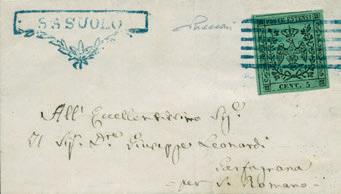 SASUOLO
POSTE ESTENSI
CENT. 5
All' Eccellentissimo Sig.
Il Sig. Dre Giuseppe Leonardi
Garfagnana
per S. Romano